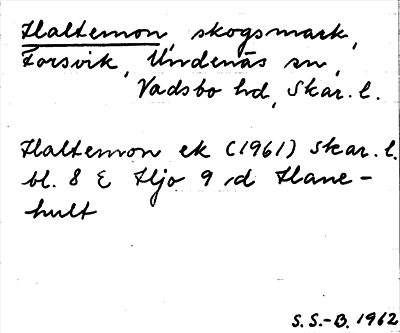 Haltemon, skogsmark,
Forsvik, Undenäs sn,
Vadsbo hd, Skar. l.
Haltemon ek (1961) Skar. l.
bl. 8 E Hjo 9 d Hane-
hult
S.S.-B. 1962